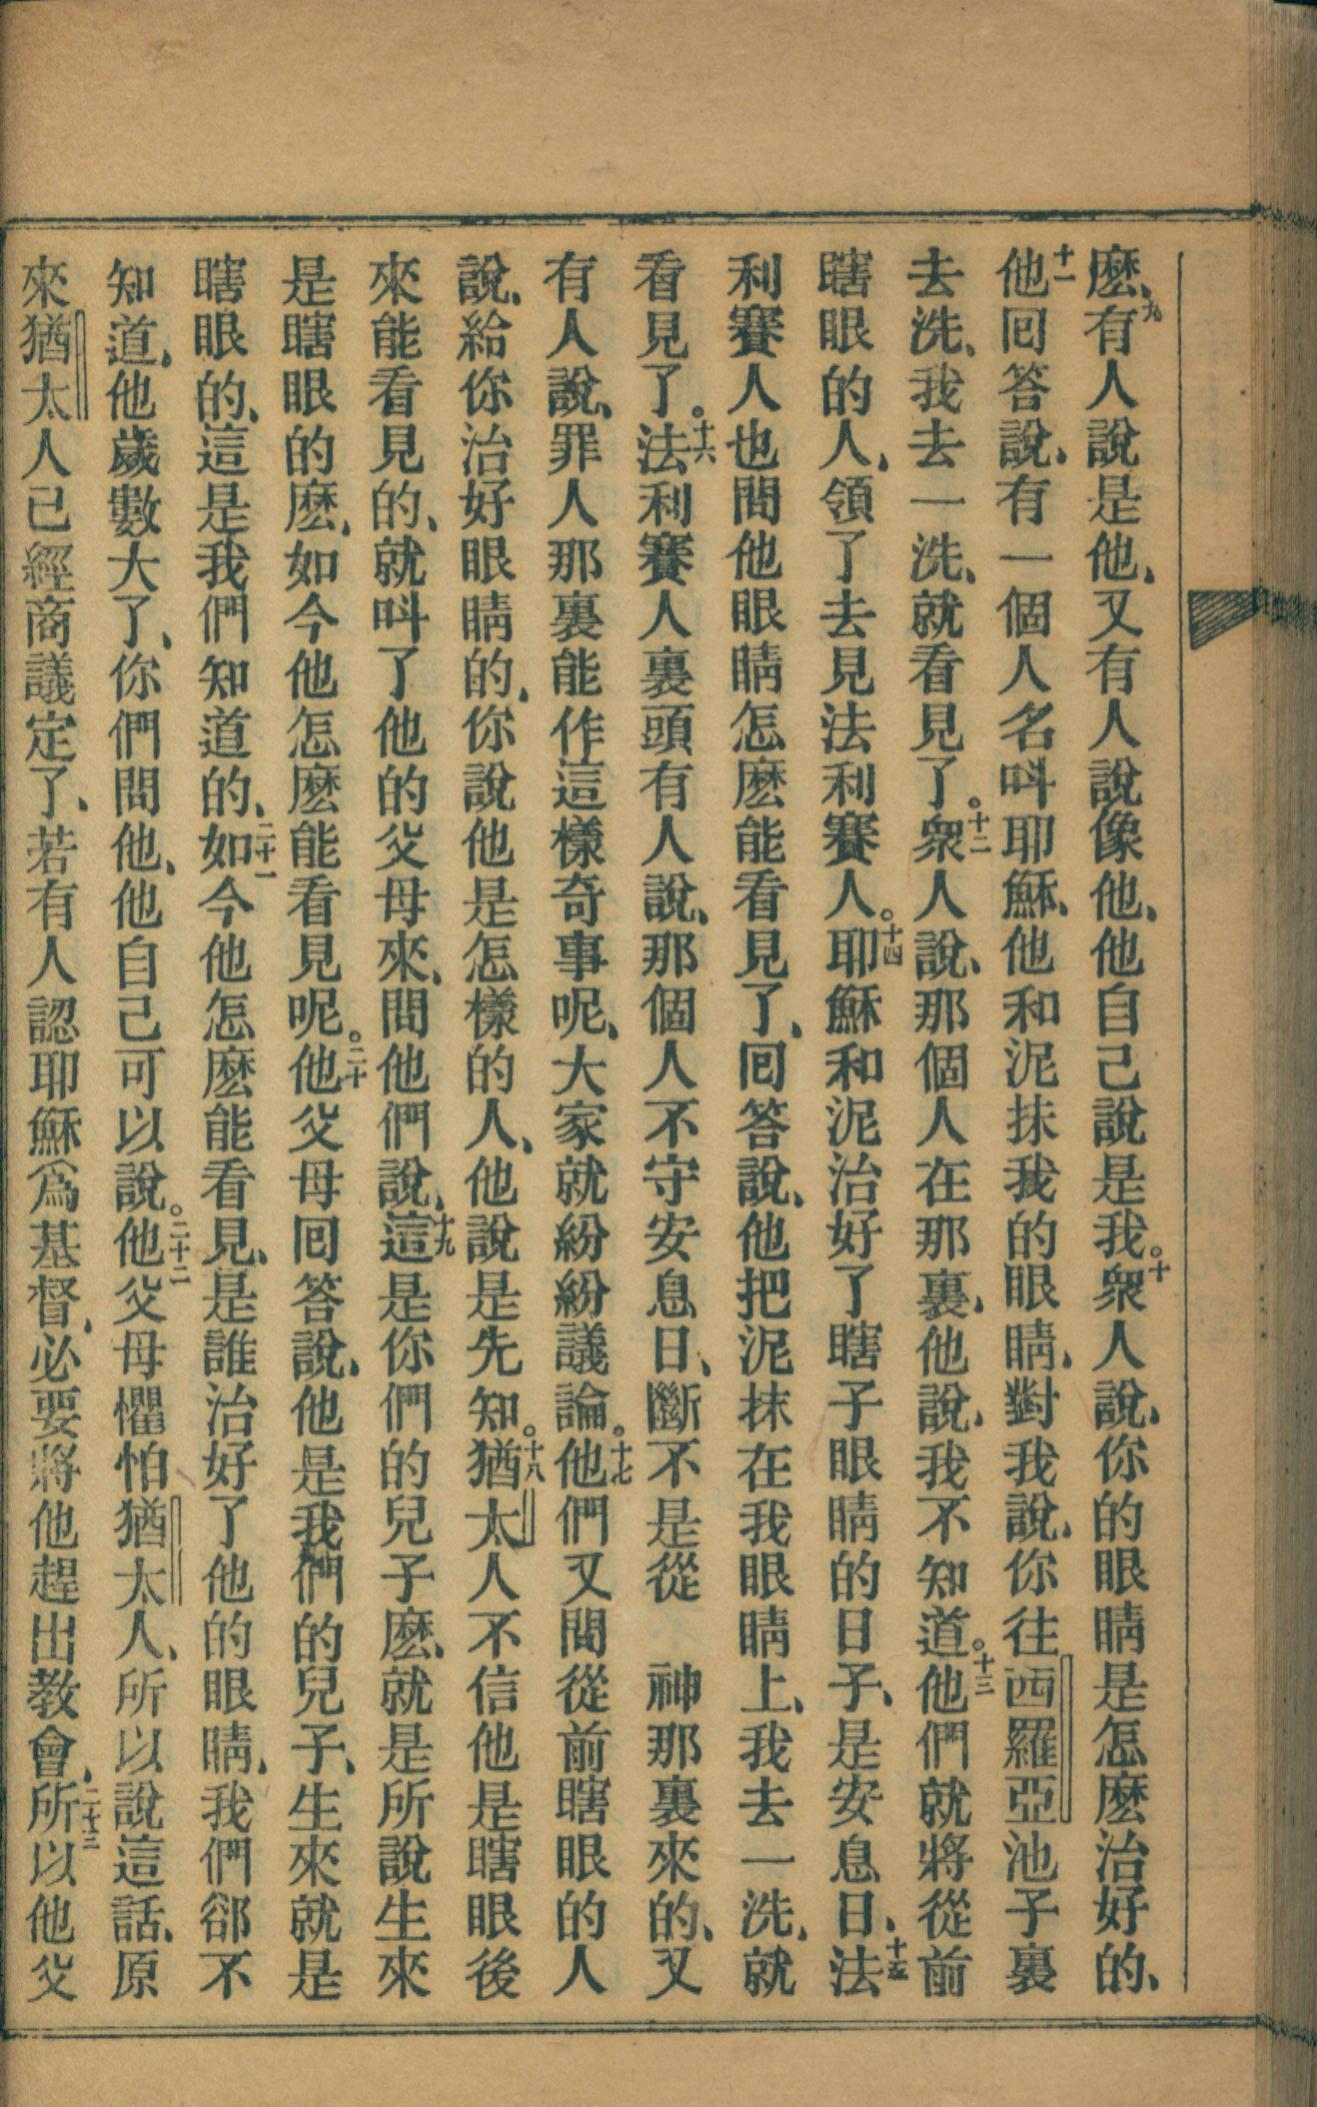 麽、九有人說是他、又有人說像他、他自己說是我。十衆人說、你的眼睛是怎麽治好的、
十一他囘答說、有一個人名呌耶穌、他和泥抹我的眼睛、對我說、你往西羅亞池子裏
去洗、我去一洗、就看見了。十二衆人說、那個人在那裏、他說、我不知道。十三他們就將從前
瞎眼的人、領了去見法利賽人。十四耶穌和泥治好了瞎子眼睛的日子、是安息日、十五法
利賽人也問他眼睛怎麽能看見了、囘答說、他把泥抹在我眼睛上、我去一洗、就
看見了。十六法利賽人裏頭有人說、那個人不守安息日、斷不是從 神那裏來的、又
有人說、罪人那裏能作這樣奇事呢、大家就紛紛議論。十七他們又問從前瞎眼的人
說、給你治好眼睛的、你說他是怎樣的人、他說是先知。十八猶太人不信他是瞎眼後
來能看見的、就呌了他的父母來、問他們說、十九這是你們的兒子麽、就是所說生來
是瞎眼的麽、如今他怎麽能看見呢。二十他父母囘答說、他是我們的兒子、生來就是
瞎眼的、這是我們知道的、二十一如今他怎麽能看見、是誰治好了他的眼睛、我們卻不
知道、他歲數大了、你們問他、他自己可以說。二十二他父母懼怕猶太人、所以說這話、原
來猶太人已經商議定了、若有人認耶穌爲基督、必要將他趕出教會、二十三所以他父